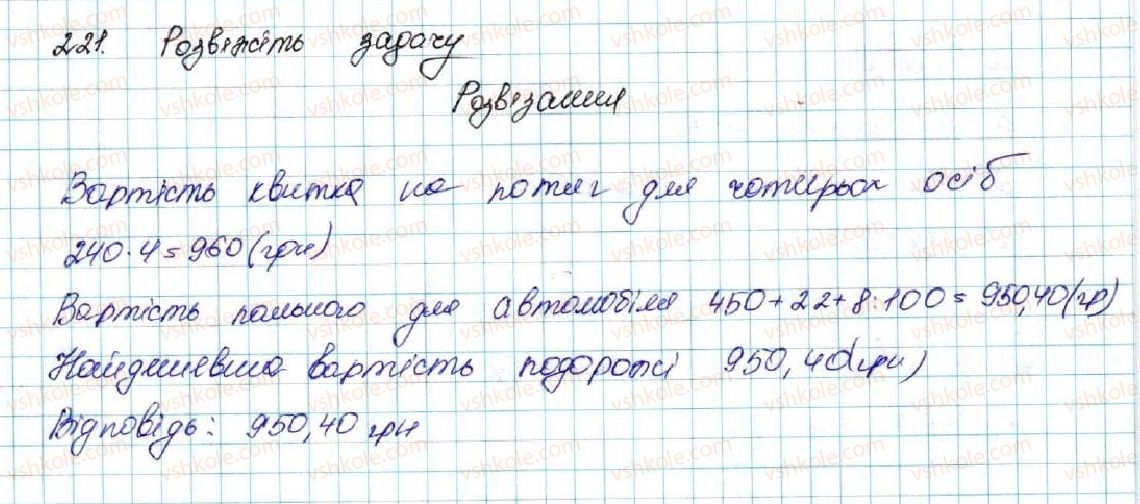 221. Розв'яжіть задачу
Розв'язання
Вартість квитка на потяг для чотирьох осіб
240·4=960(грн)
Вартість пального для автомобіля 450+22+8:100=950,40(гр)
Найдешевша вартість подорожі 950,40(грн)
Відповідь: 950,40 грн